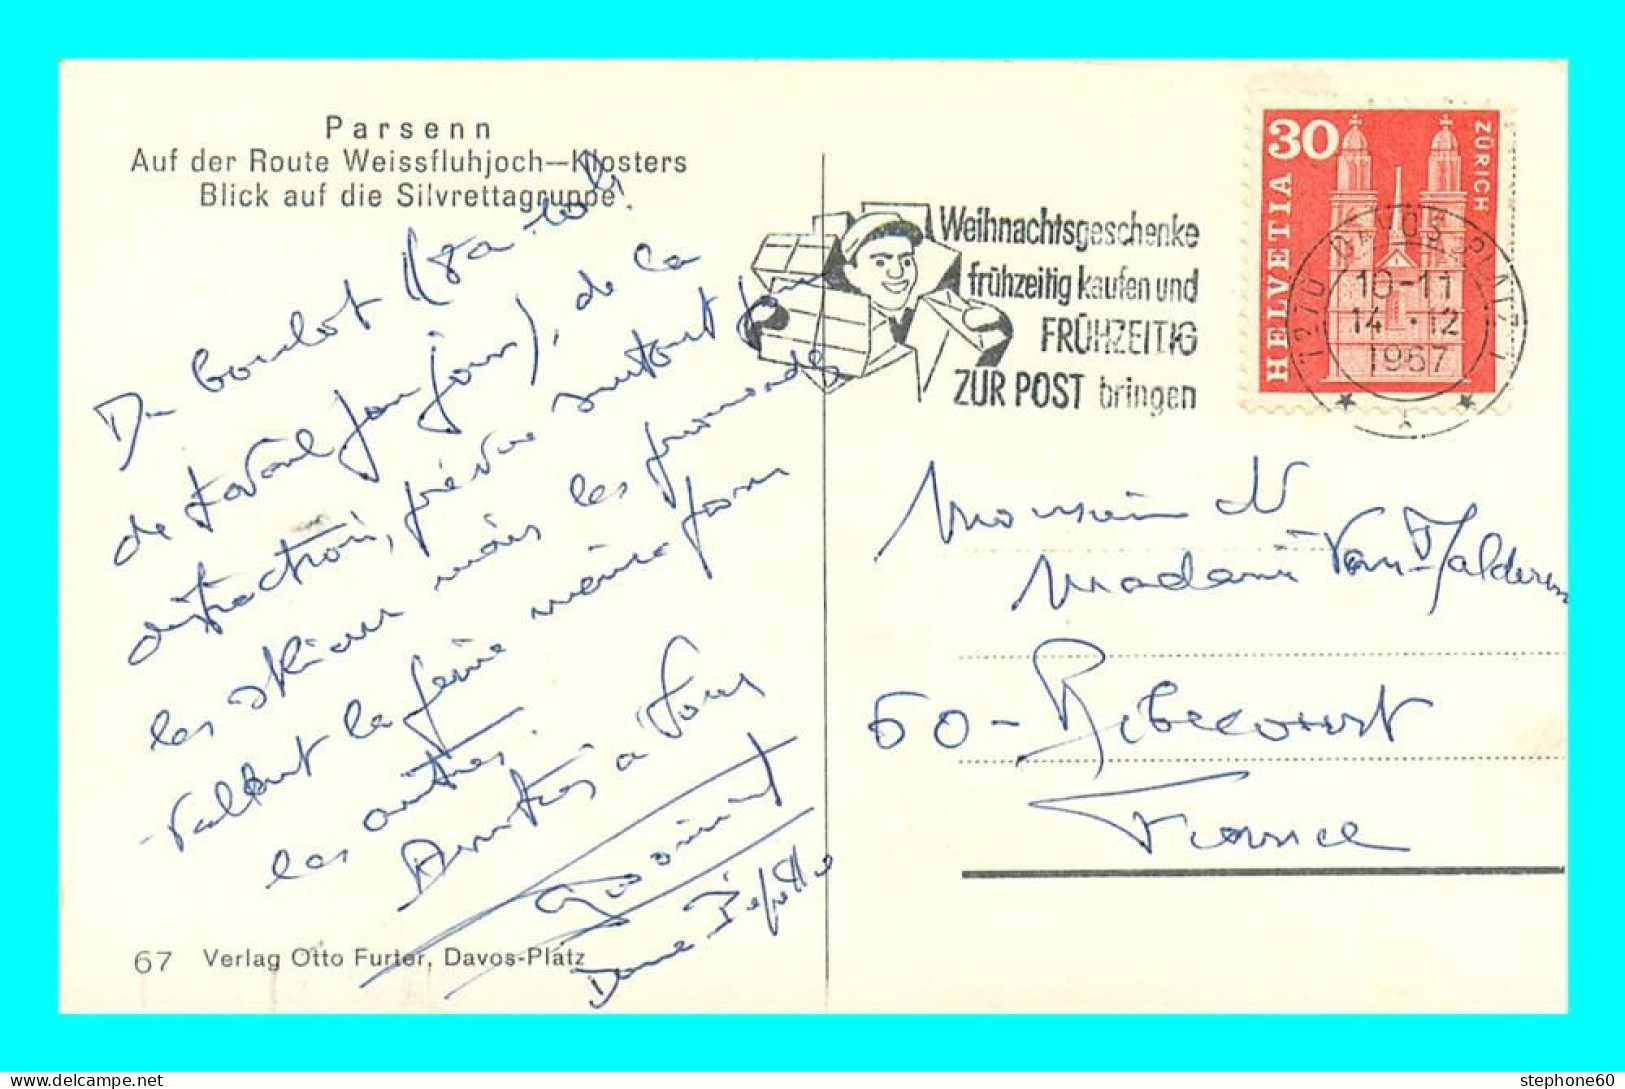 Parsenn
Auf der Route Weissfluhjoch—Klosters
Blick auf die Silvrettagruppe
Weihnachtsgeschenke
frühzeitig kaufen und
FRÜHZEITIG
ZUR POST bringen
30
HELVETIA
ZÜRICH
7270 DAVOS PLATZ 1
10-11
14.12
1967
Du boulot
de travail par jour), de la
distraction, prévue surtout pour
les skieurs mais les promenades
valent la peine même pour
les autres.
Amitiés à Tous
Monsieur et
Madame Van Malderen
60-Ribecourt
France
67 Verlag Otto Furter, Davos-Platz
stephone60